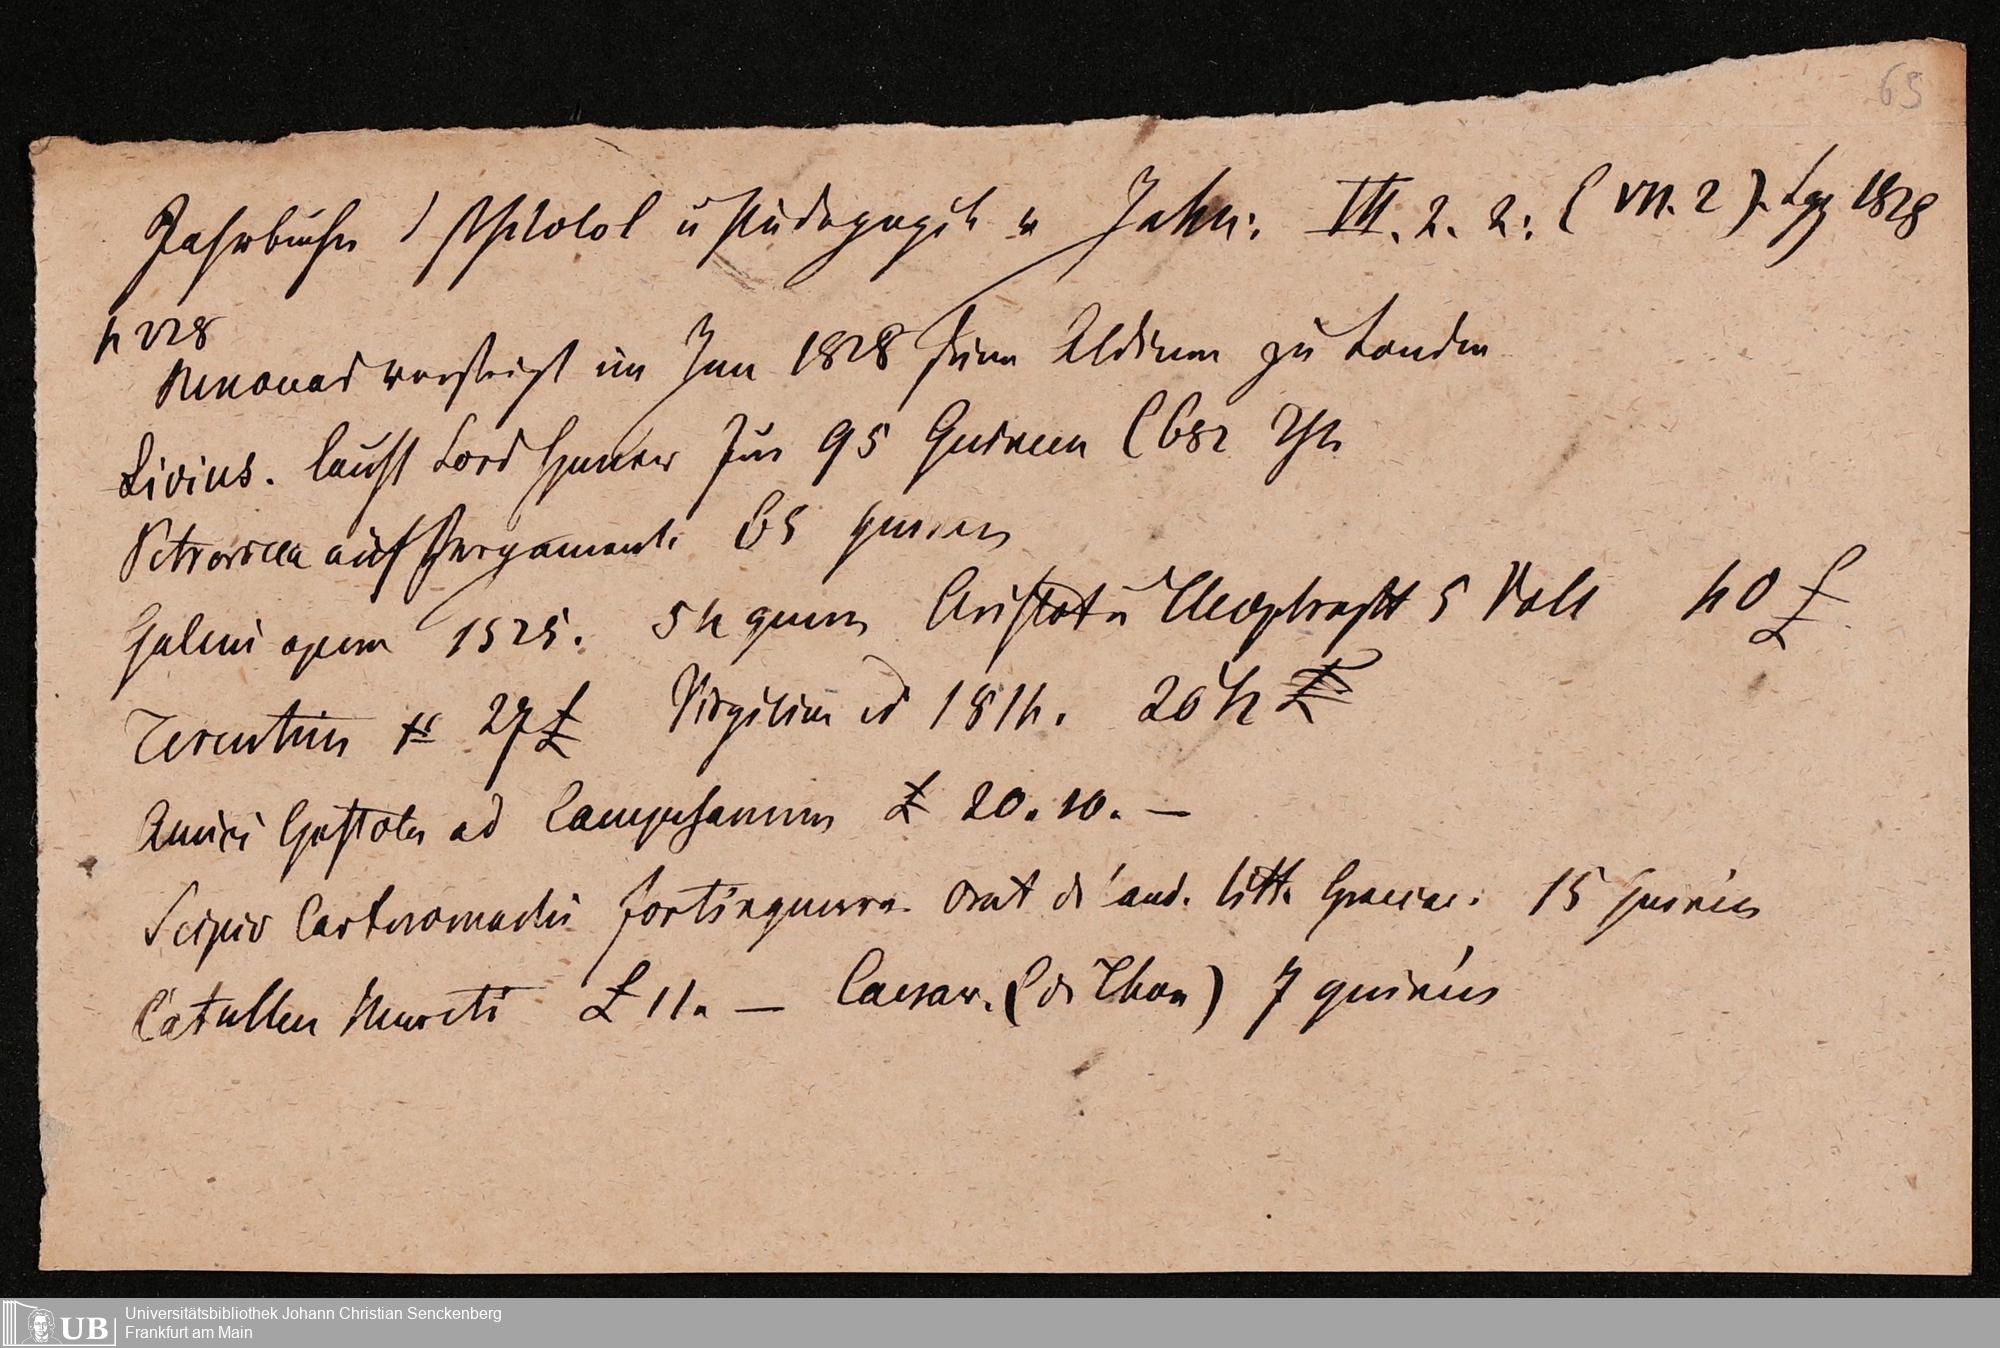 65
Jahrbücher f Philolol u Pädagogik v Jahn: III. 2. 2: (VII. 2). Lpz 1828
p 228
Renouard versteigt im Jun 1828 seine Aldinen zu London
Livius. kauft Lord Spencer für 95 Guineen (682 Thl
Petrarcha auf Pergament. 65 guineen
Galeni opera 1525. 54 guinn Aristot u Theophrast 5 Voll 40 £
Terentius 27 £ Virgilius ed 1514. 204 £
Amici Epistola ad Campesanum £ 20. 10. —
Scipio Carteromachi fortinguerra. Orat de laud. litt. Graecar: 15 guineen
Catullen Mureti £ 11. — Caesar. (de Thou) 7 guineen
Universitätsbibliothek Johann Christian Senckenberg
Frankfurt am Main
UB